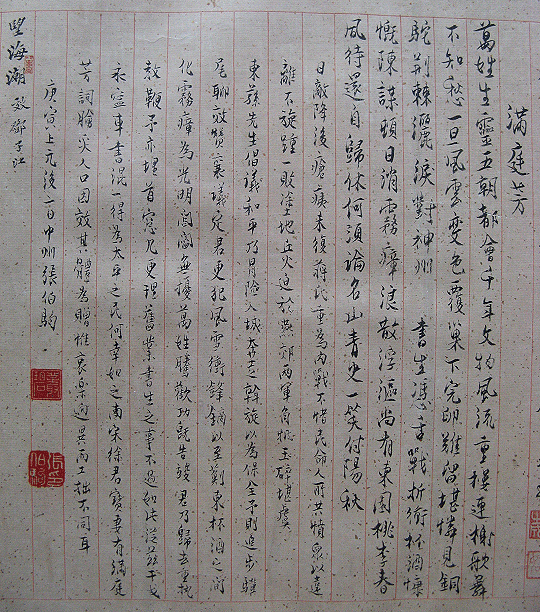 滿庭芳
萬姓生靈五朝都會千年文物風流重樓連榭歌舞
不知愁一旦風雲變色覆巢下完卵難留堪憐見銅
駝荊棘灑淚對神州 書生憑舌戰折衝杯酒慷
慨陳謀頓日消霧瘴浪散浮漚尚有東園桃李春
風待還自歸休何須論名山青史一笑付陽秋
日敵降後瘡痍未復蔣氏重為內戰不惜民命人所共憤眾以違
離不旋踵一敗塗地兵火迫於燕郊兩軍角抵玉碎堪虞
東蓀先生倡議和平乃冒險入城之斡旋以為保全予則追步驥
尾聊效贊襄議定君更犯風雪衝鋒鏑以至薊東杯酒之間
化霧瘴為光明閭閻無擾萬姓騰歡功既告竣君乃歸去重執
教鞭予亦埋首窗几更理舊業書生之事不過如此從茲干戈
永車書混一得為太平之民何幸如之南宋徐君寶妻有滿庭
芳詞膾炙人口因效其體為贈惟哀樂迥異而工拙不同耳
庚寅上元後二日中州張伯駒
望海潮